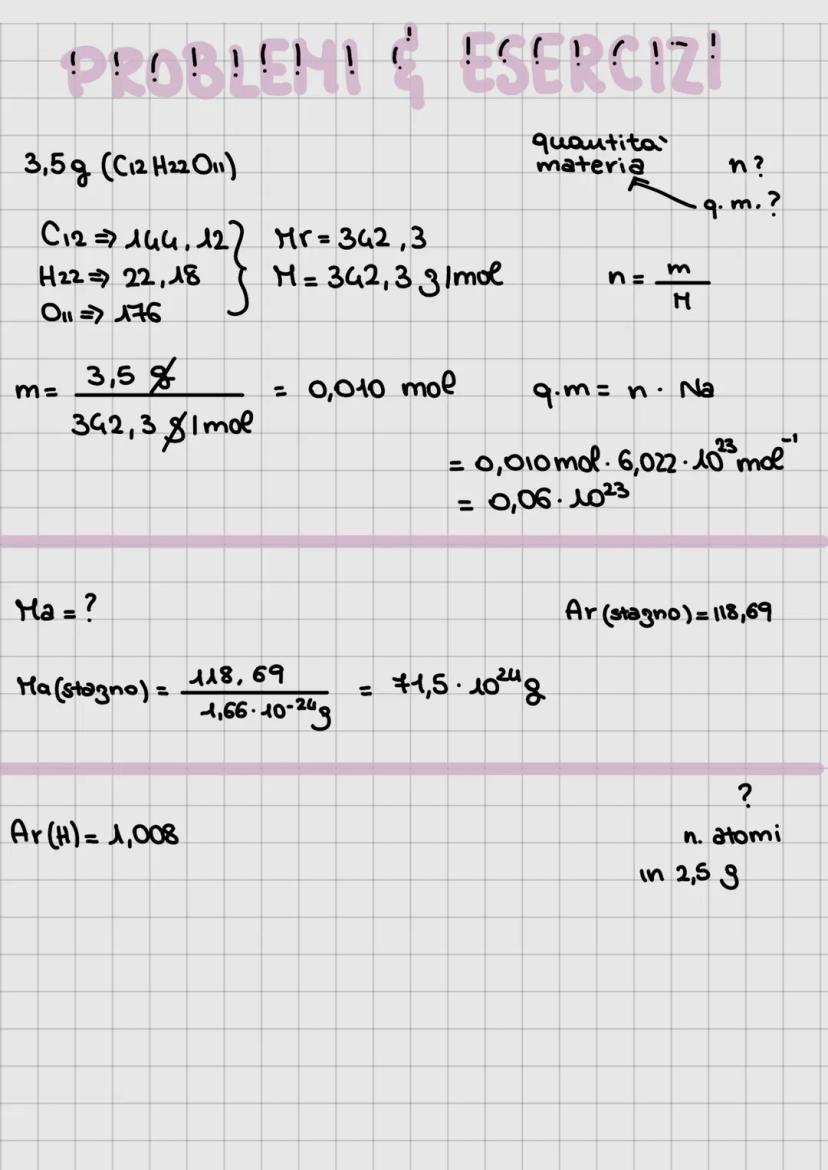 PROBLEMI & ESERCIZI
3,5 g (C12 H22 O11)
quantità
materia n?
q.m.?
C12 ⇒ 144,12
H22 ⇒ 22,18
O11 ⇒ 176
Mr = 342,3
M = 342,3 g/mol
n = m / M
m = 3,5 g / 342,3 g/mol = 0,010 mol
q.m = n · Na
= 0,010 mol · 6,022 · 10²³ mol⁻¹
= 0,06 · 10²³
Ma = ?
Ar (stagno) = 118,69
Ma (stagno) = 118,69 / 1,66 · 10⁻²⁴ g = 71,5 · 10²⁴ g
Ar (H) = 1,008
?
n. atomi
in 2,5 g